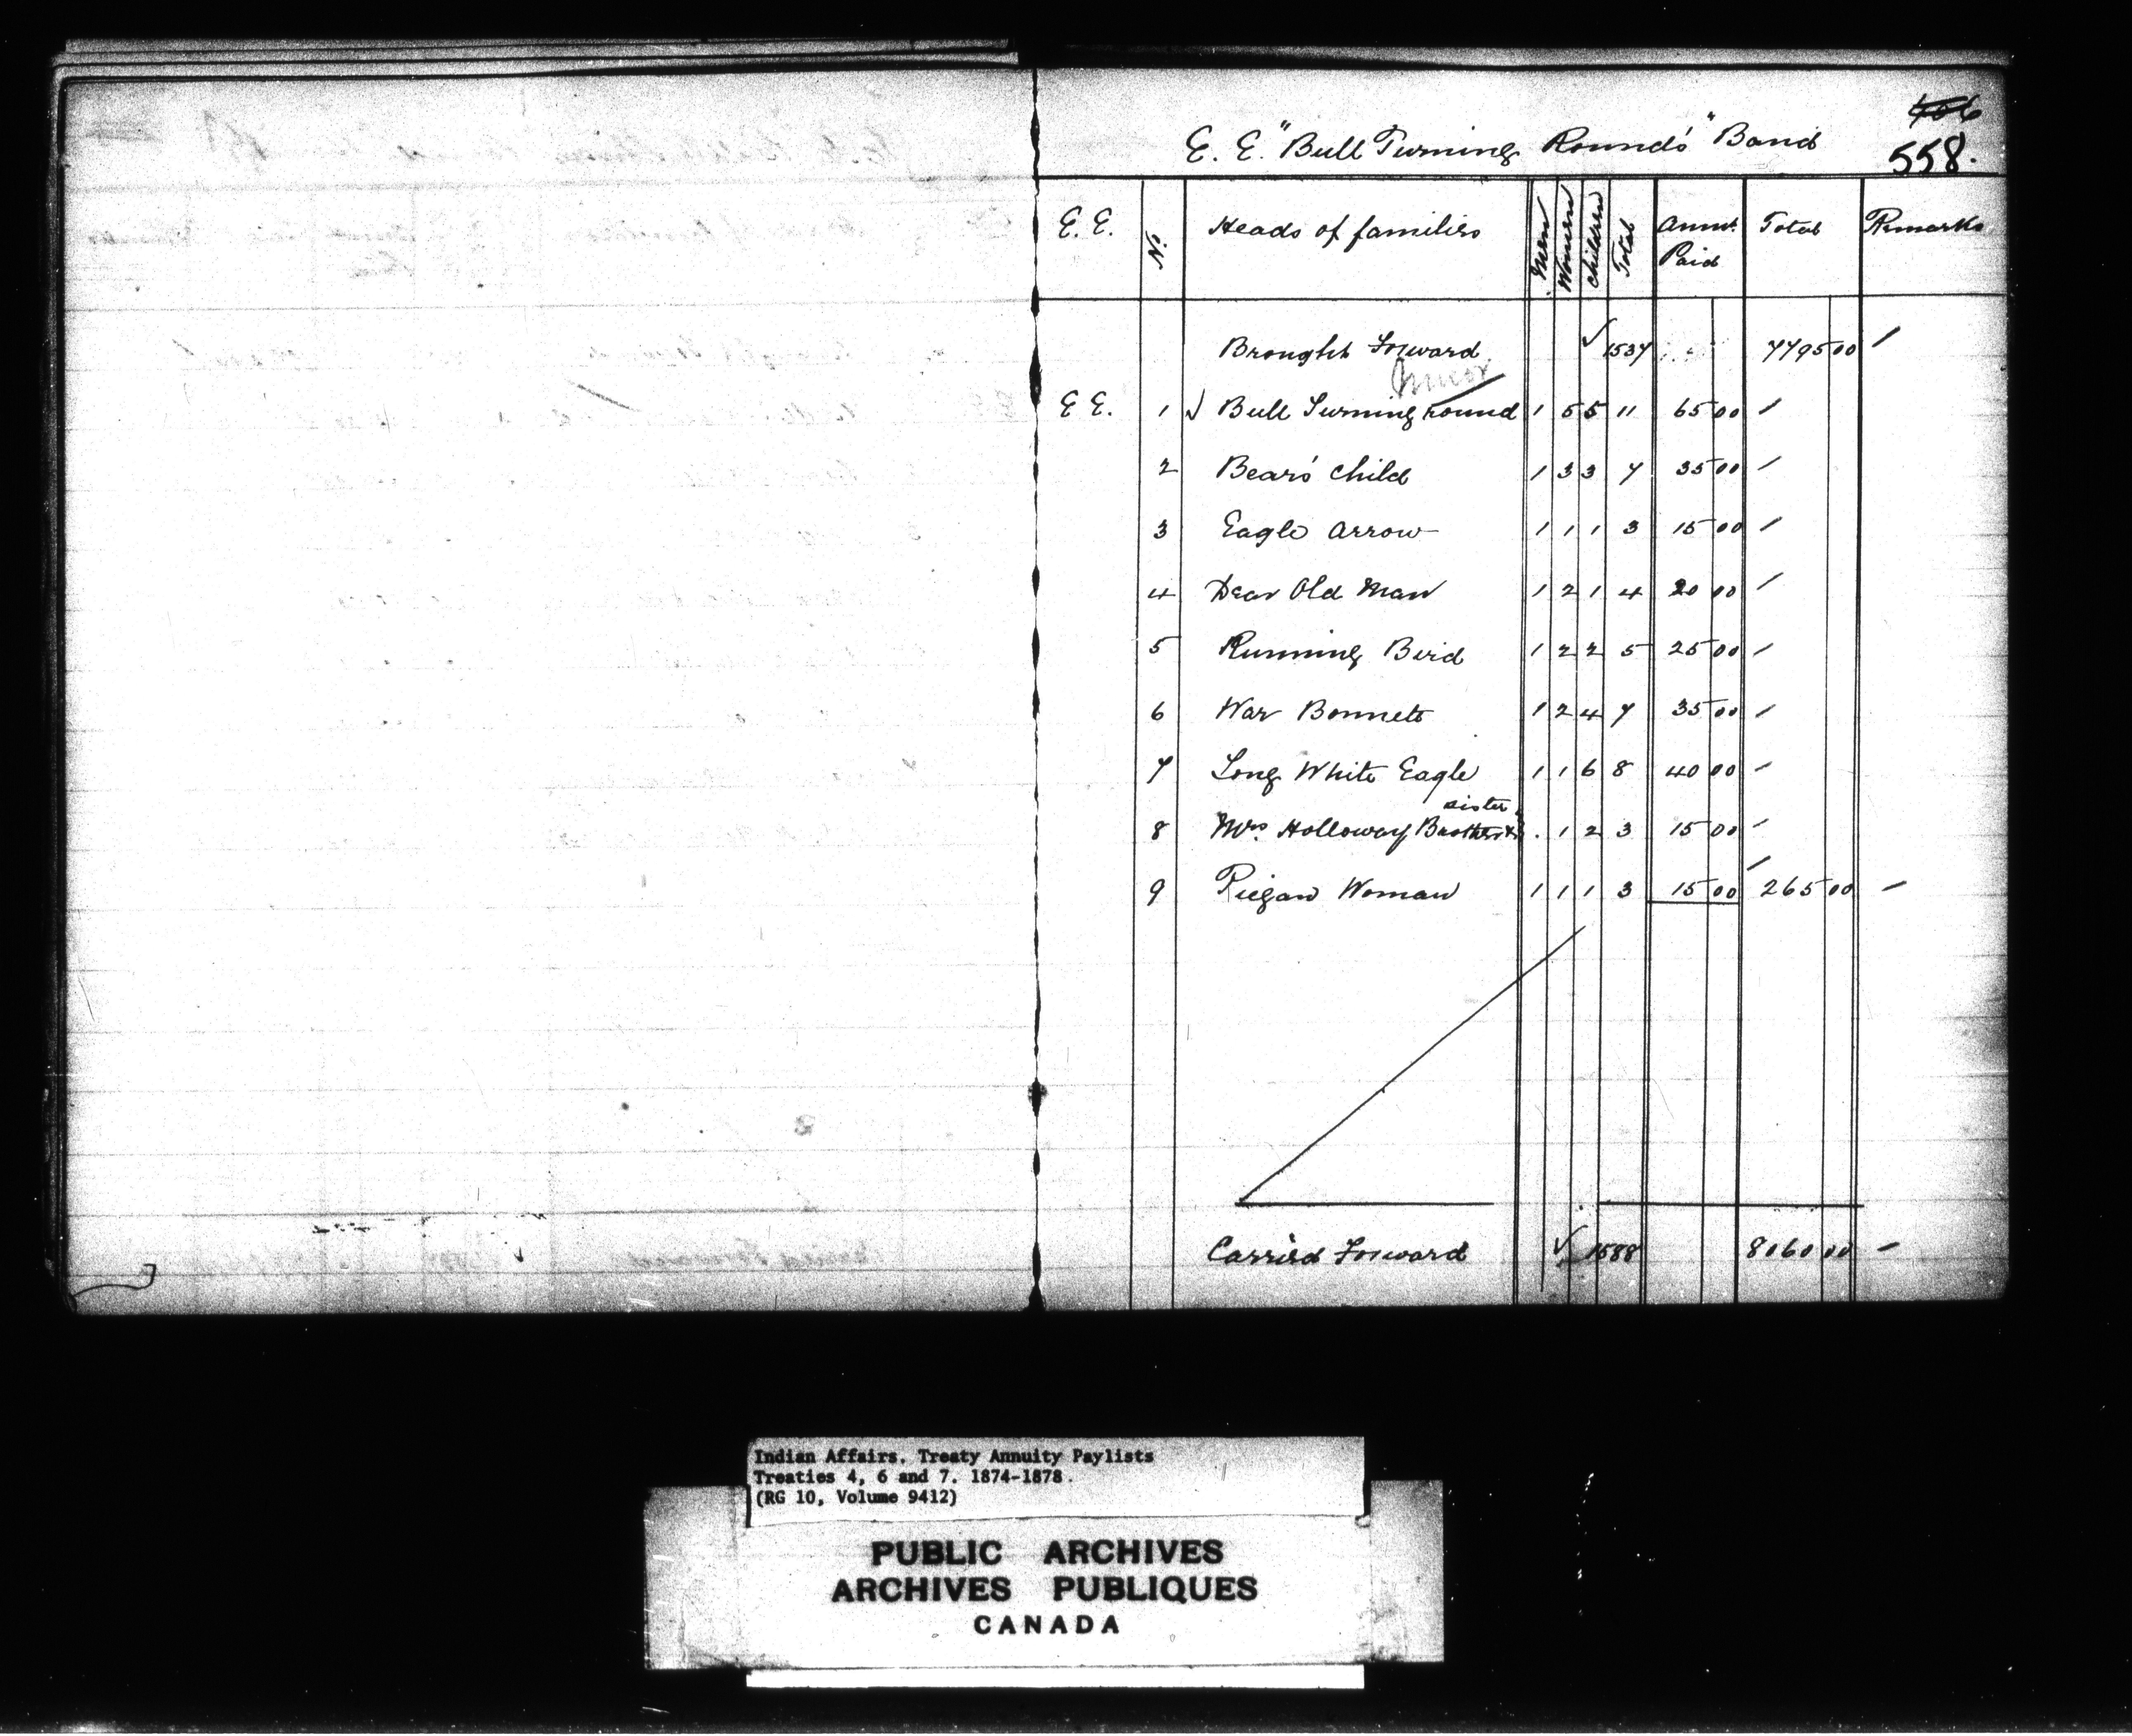 406
E. E. "Bull Turning Round's" Band
558.
E. E. No. Heads of families Men Women Children Total Amnt. Paid Total Remarks
Brought Forward ✓ 1537 7795 00 /
Minor
E E. 1 ✓ Bull Turning round 1 5 5 11 65 00 /
2 Bear's child 1 3 3 7 35 00 /
3 Eagle arrow 1 1 1 3 15 00 /
4 Dear Old Man 1 2 1 4 20 00 /
5 Running Bird 1 2 2 5 25 00 /
6 War Bonnett 1 2 4 7 35 00 /
7 Long White Eagle 1 1 6 8 40 00 /
sister
8 Mrs. Holloway . 1 2 3 15 00 /
9 Piegan Woman 1 1 1 3 15 00 / 265 00 /
Carried Forward ✓ 1588 8060 00 /
Indian Affairs. Treaty Annuity Paylists
Treaties 4, 6 and 7. 1874-1878.
(RG 10, Volume 9412)
PUBLIC ARCHIVES
ARCHIVES PUBLIQUES
CANADA